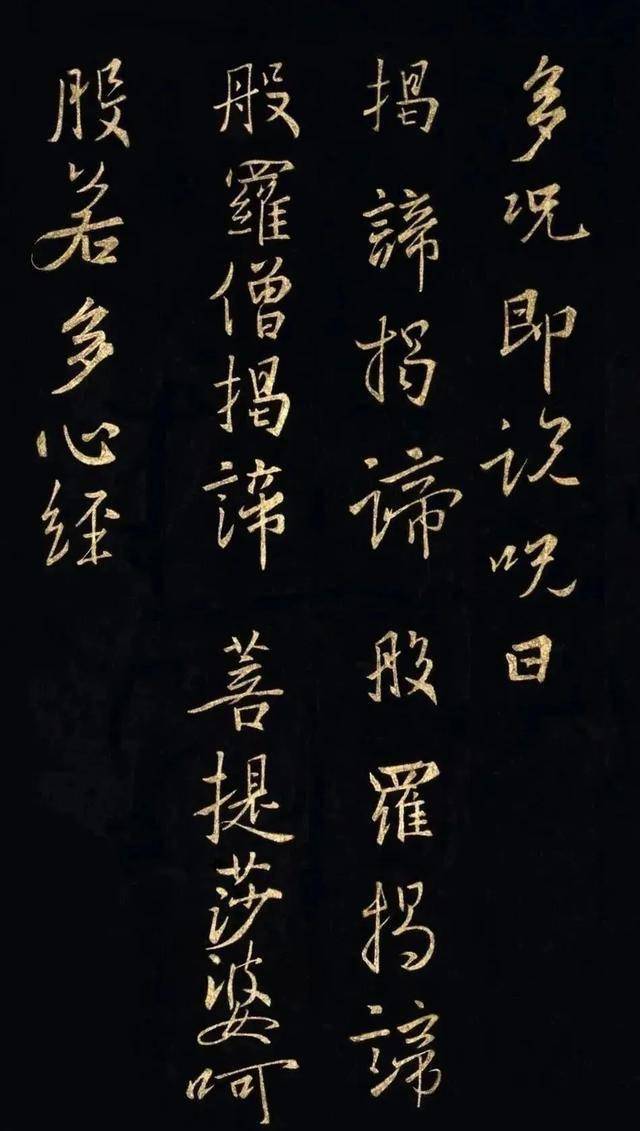 多咒即说咒曰
揭諦揭諦 般羅揭諦
般羅僧揭諦 菩提莎婆呵
般若多心経